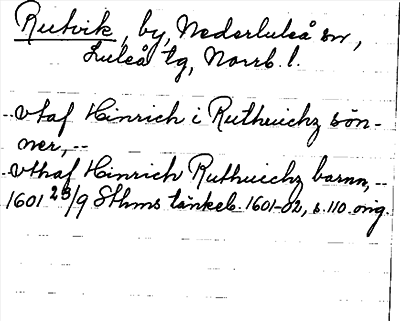 Rutvik, by, Nederluleå sn,
Luleå tg, Norrb. l.
vtaf Hinrich i Ruthuichz sön-
ner, --
vthaf Hinrich Ruthuichz barnn, --
1601 23/9 Sthms tänkeb. 1601-02, s. 110 orig.